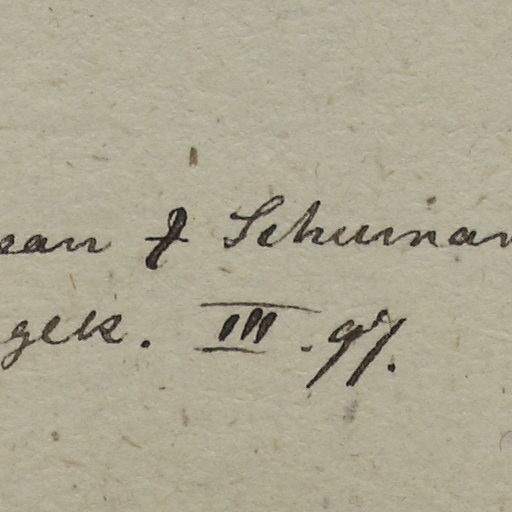 ean f Schuman
gek. III. 97.